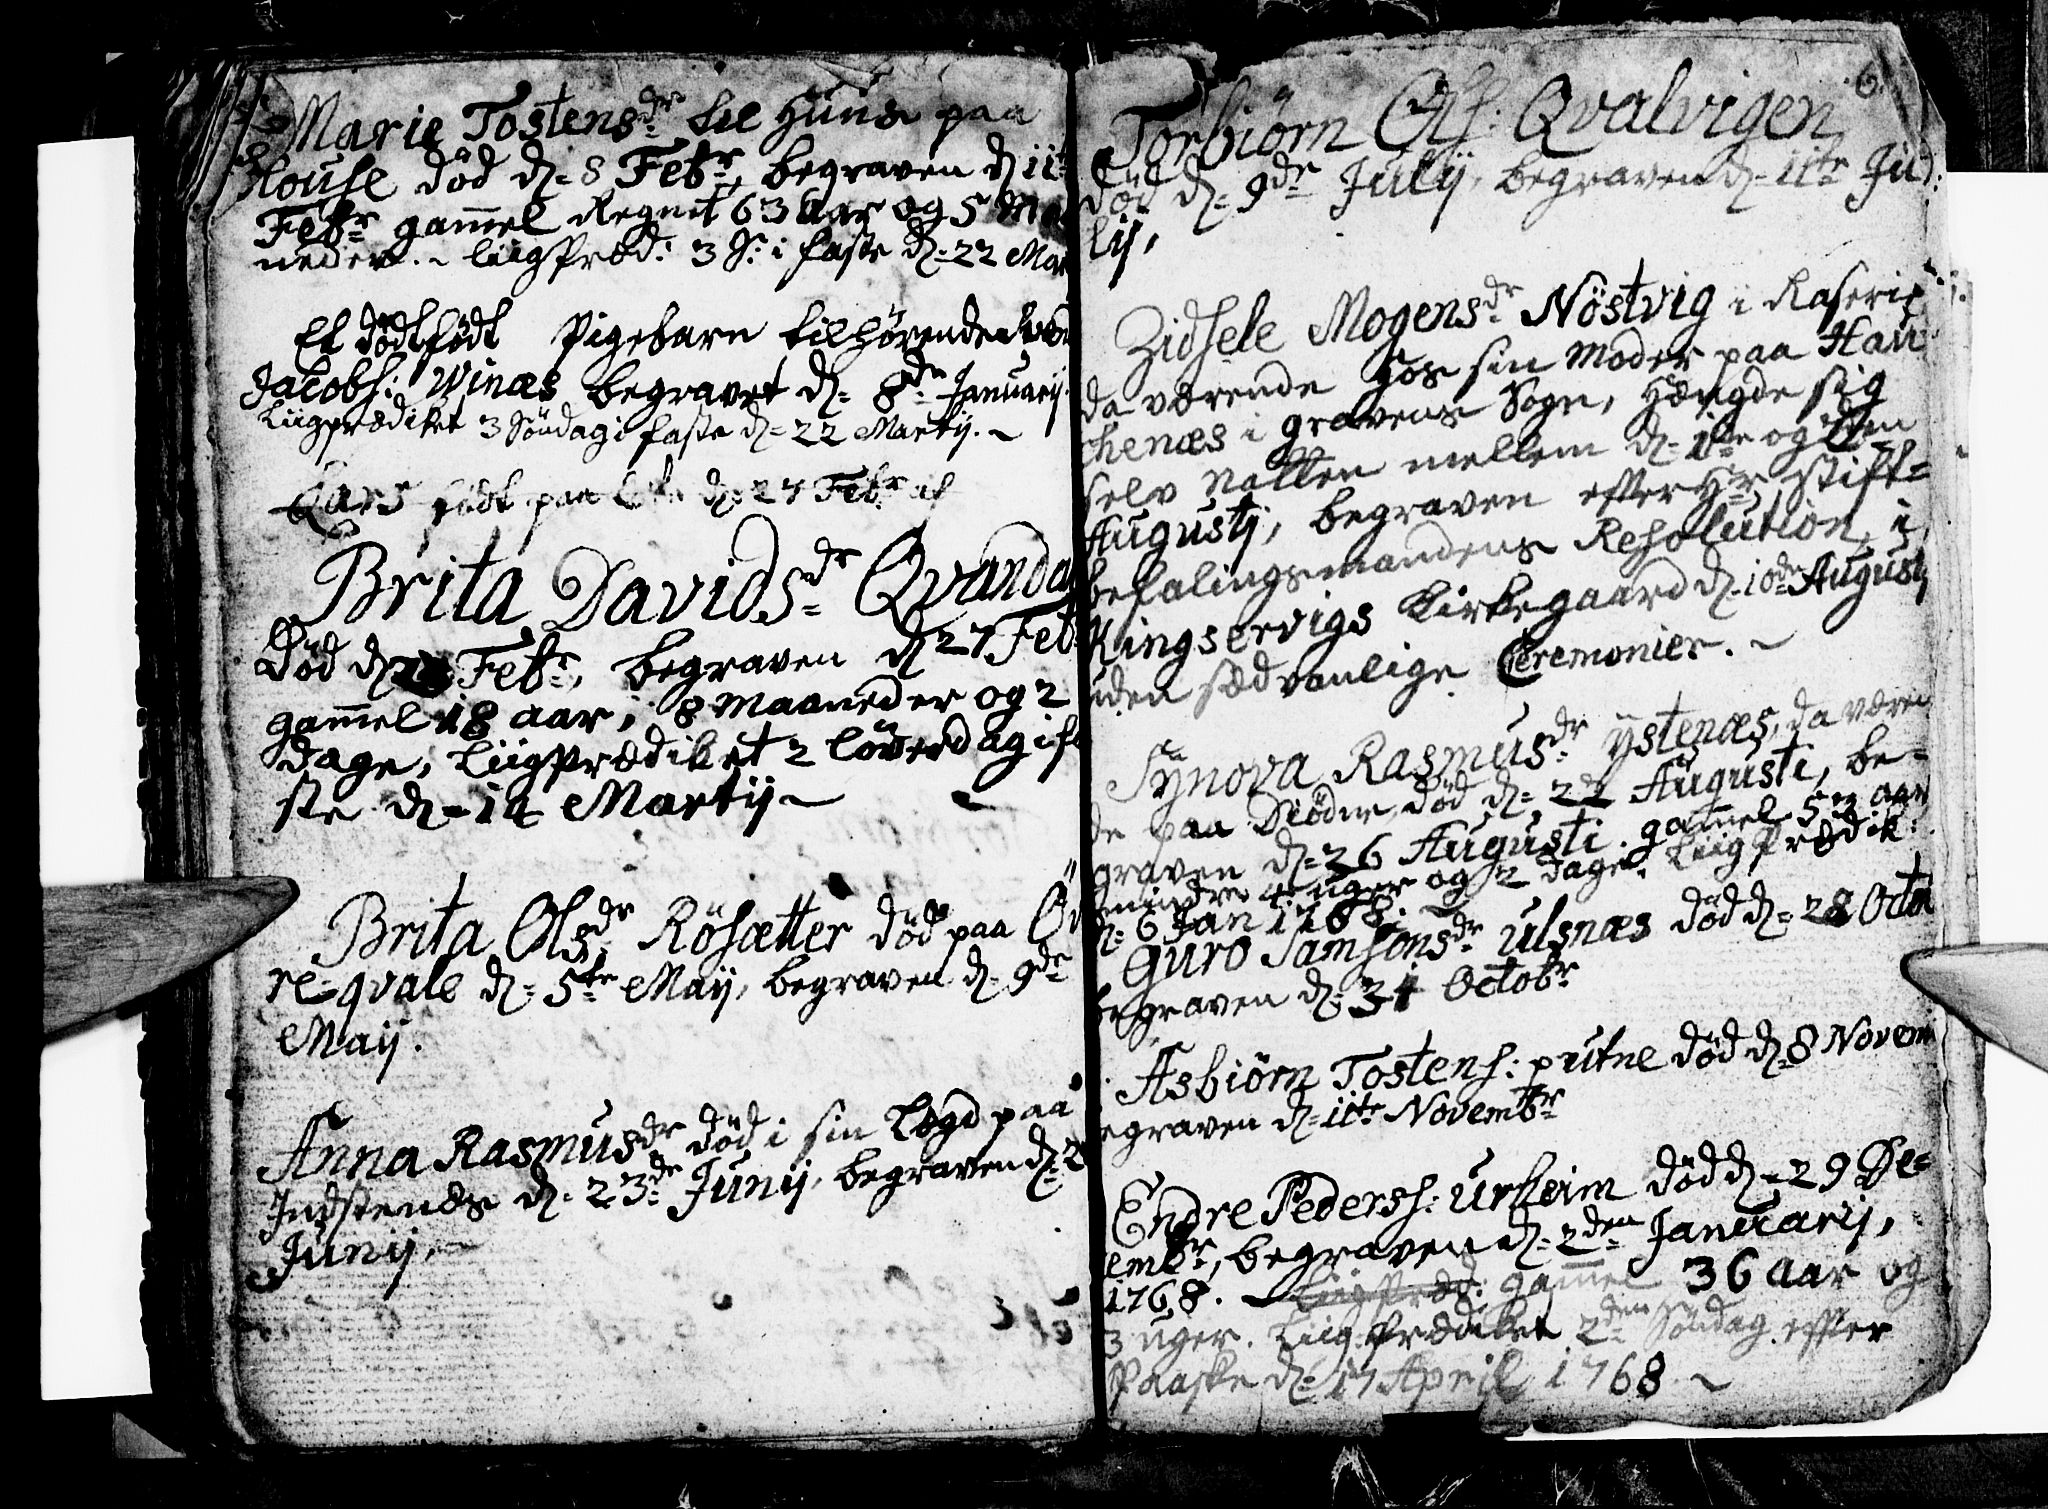 Marie Tostensdr til Huus paa
House død d. 8 Febr, begraven d 11t
Febr gam̄el Regnet 63 aar og 5 Ma
neder. ~ Liigpræd: 3 S: i faste d. 22 Mar
Et dødtfødt Pigebarn tilhørende
Jacobs: Winæs begravet d. 8de Januarij
Liigprædiket 3 Søndag i faste d. 22 Martij. ~
Lars født paa d. 27 Febr af
Brita Davidsdr Qvanda
Død d. Febr, begraven d 27 Feb
gam̄el 18 aar, 8 Maaneder og 2
dage, Liigprædiket 2 løverdag i fa
ste d. 14 Martij ~
Brita Olsdr Røsætter død paa Øv
re-qvale d. 5te Maij, begraven d. 9de
Maij.
Anna Rasmusdr død i sin Lægd paa
Indstenæs d. 23de Junij, begraven d. 2
Junij, ~
6.
Torbiørn Ols: Qvalvigen
død d. 9de Julij, begraven d. 11te Ju
lij,
Zidsele Mogensdr Nöstvig i Raserie
da værende hos sin Moder paa Hau
chenæs i gravens Sogn, Hængde sig
selv Natten mellem d. 1te og den
Augustj, begraven efter Hr Stift-
befalingsmandens Resolution, i
Kingservigs Kirkegaard d. 10de Augustj
uden sædvanlige Ceremonier. ~
Synova Rasmusdr ystenæs, da væren
de paa Diödne, død d. 22 Augusti, be-
graven d. 26 Augusti. gam̄el 53 aar
mindre 4 uger og 2 dage. Liigprædik:
d. 6 Jan 1768. ~
Guro Samsonsdr Ulsnæs død d. 28 Octo
begraven d. 31 Octobr
Asbiörn Tostens: putne død d. 8 Novem
egraven d. 11te Novembr
Endre Peders: Urheim død d. 29 De-
embr, begraven d. 2den Januarij,
1768. ~ Liigpræd: gam̄el 36 aar og
3 uger. Liigprædiket 2den Søndag effter
Paaske d. 17 April 1768. ~